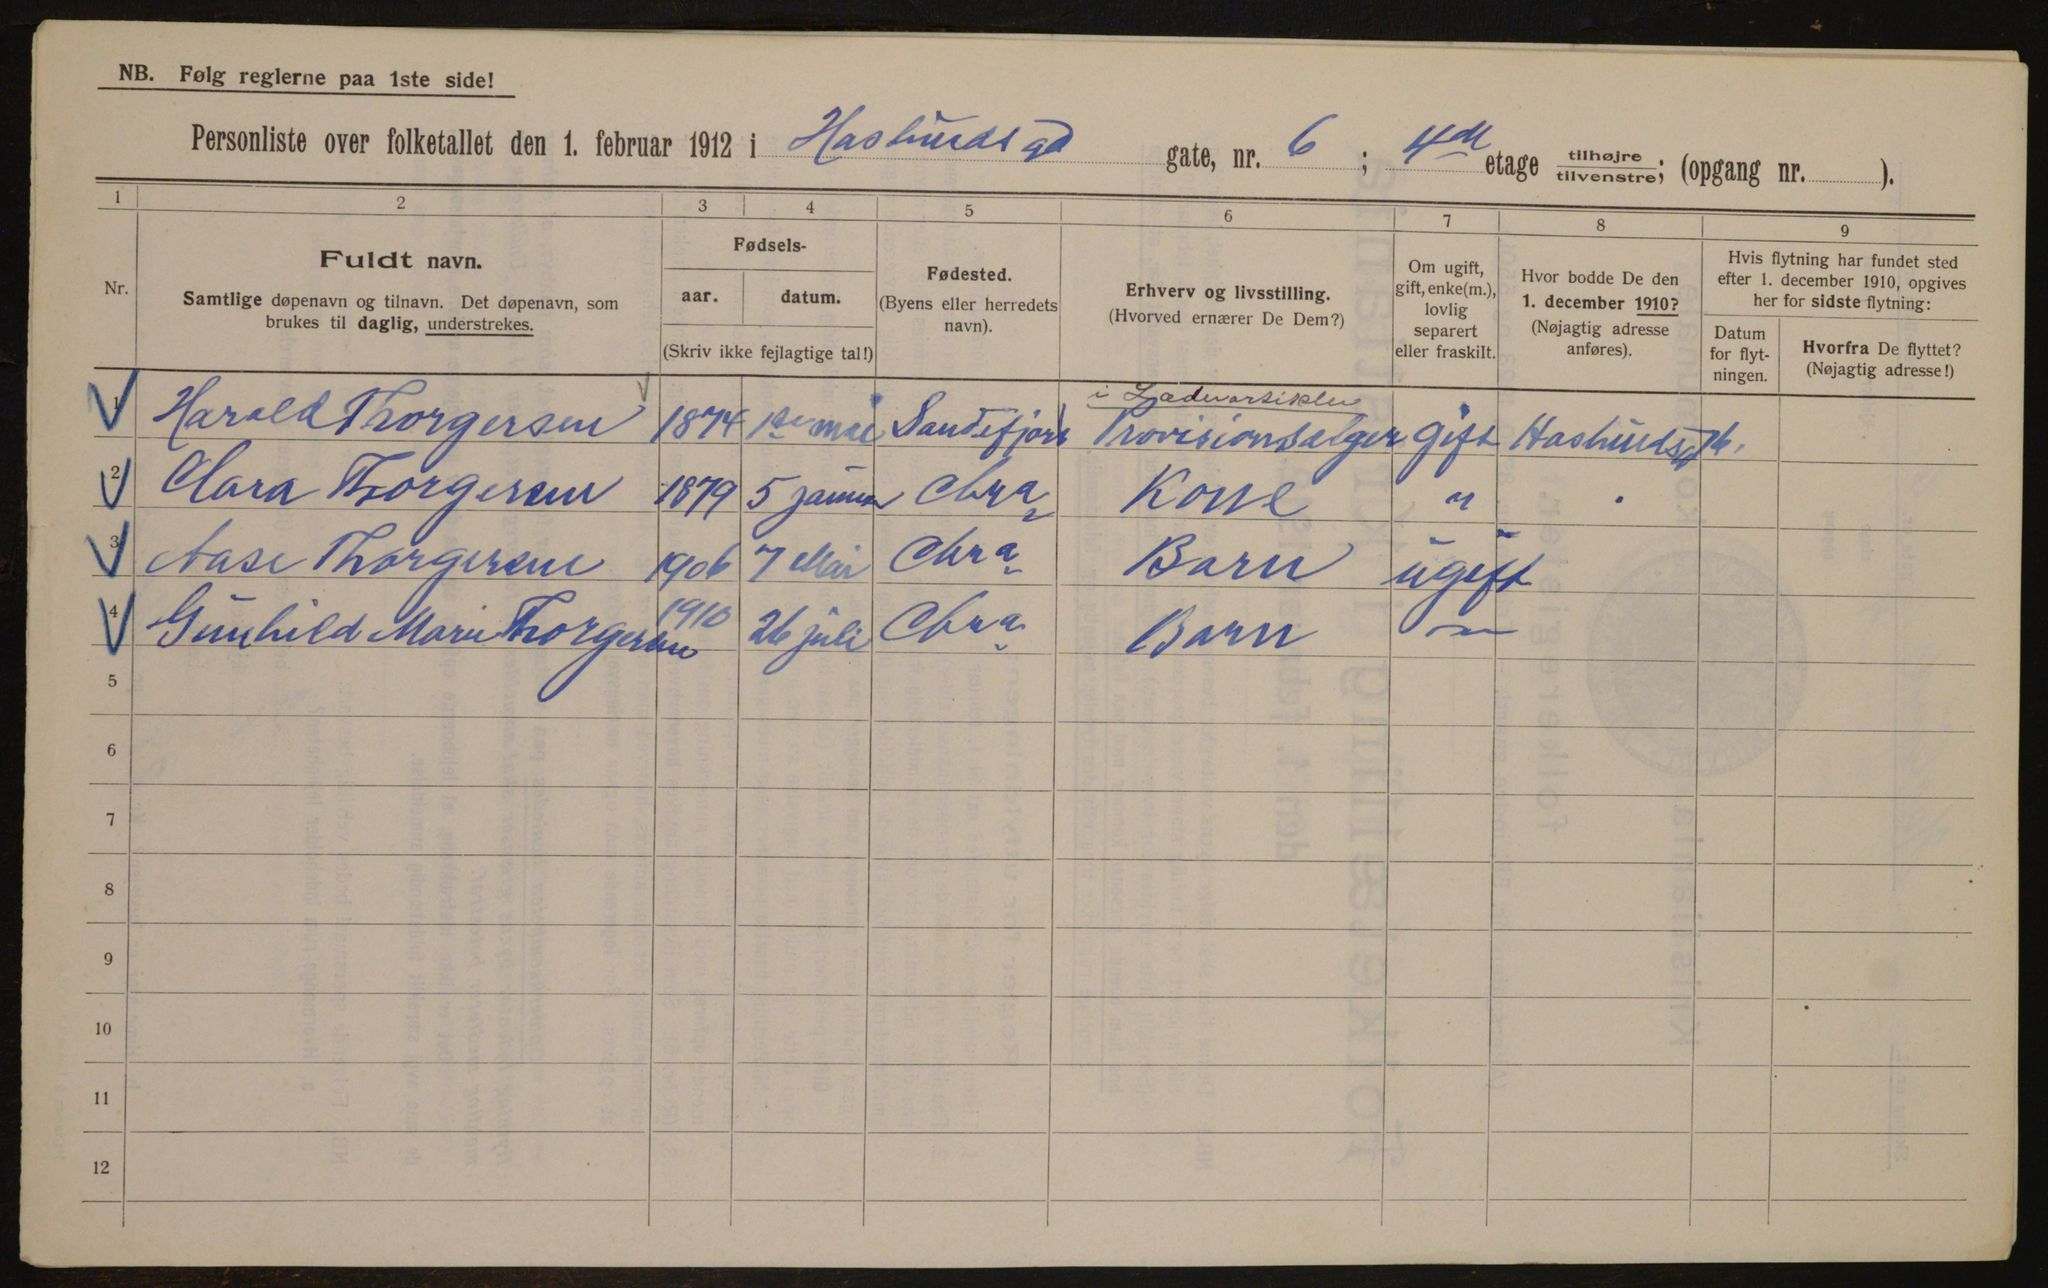 NB. Følg reglerne paa 1ste side!
Personliste over folketallet den 1. februar 1912 i Haslundsgd gate, nr. 6 ; 4de etage tilhøjre/tilvenstre; (opgang nr. ).
1 2 3 4 5 6 7 8 9
Nr.
Fuldt navn.
Samtlige døpenavn og tilnavn. Det døpenavn, som
brukes til daglig, understrekes.
Fødsels-
aar. datum.
(Skriv ikke fejlagtige tal!)
Fødested.
(Byens eller herredets
navn).
Erhverv og livsstilling.
(Hvorved ernærer De Dem?)
Om ugift,
gift, enke(m.),
lovlig
separert
eller fraskilt.
Hvor bodde De den
1. december 1910?
(Nøjagtig adresse
anføres).
Hvis flytning har fundet sted
efter 1. december 1910, opgives
her for sidste flytning:
Datum
for flyt-
ningen.
Hvorfra De flyttet?
(Nøjagtig adresse!)
i Læderartikler
1 Harald Thorgersen 1874 1ste mai Sandefjord Provisionsælger gift
2 Clara Thorgersen 1879 5 januar Chra Kone "
3 Aase Thorgersen 1906 7 Mai Chra Barn ugift
4 Gunhild Marie Thorgersen 1910 26 juli Chra Barn "
5
6
7
8
9
10
11
12